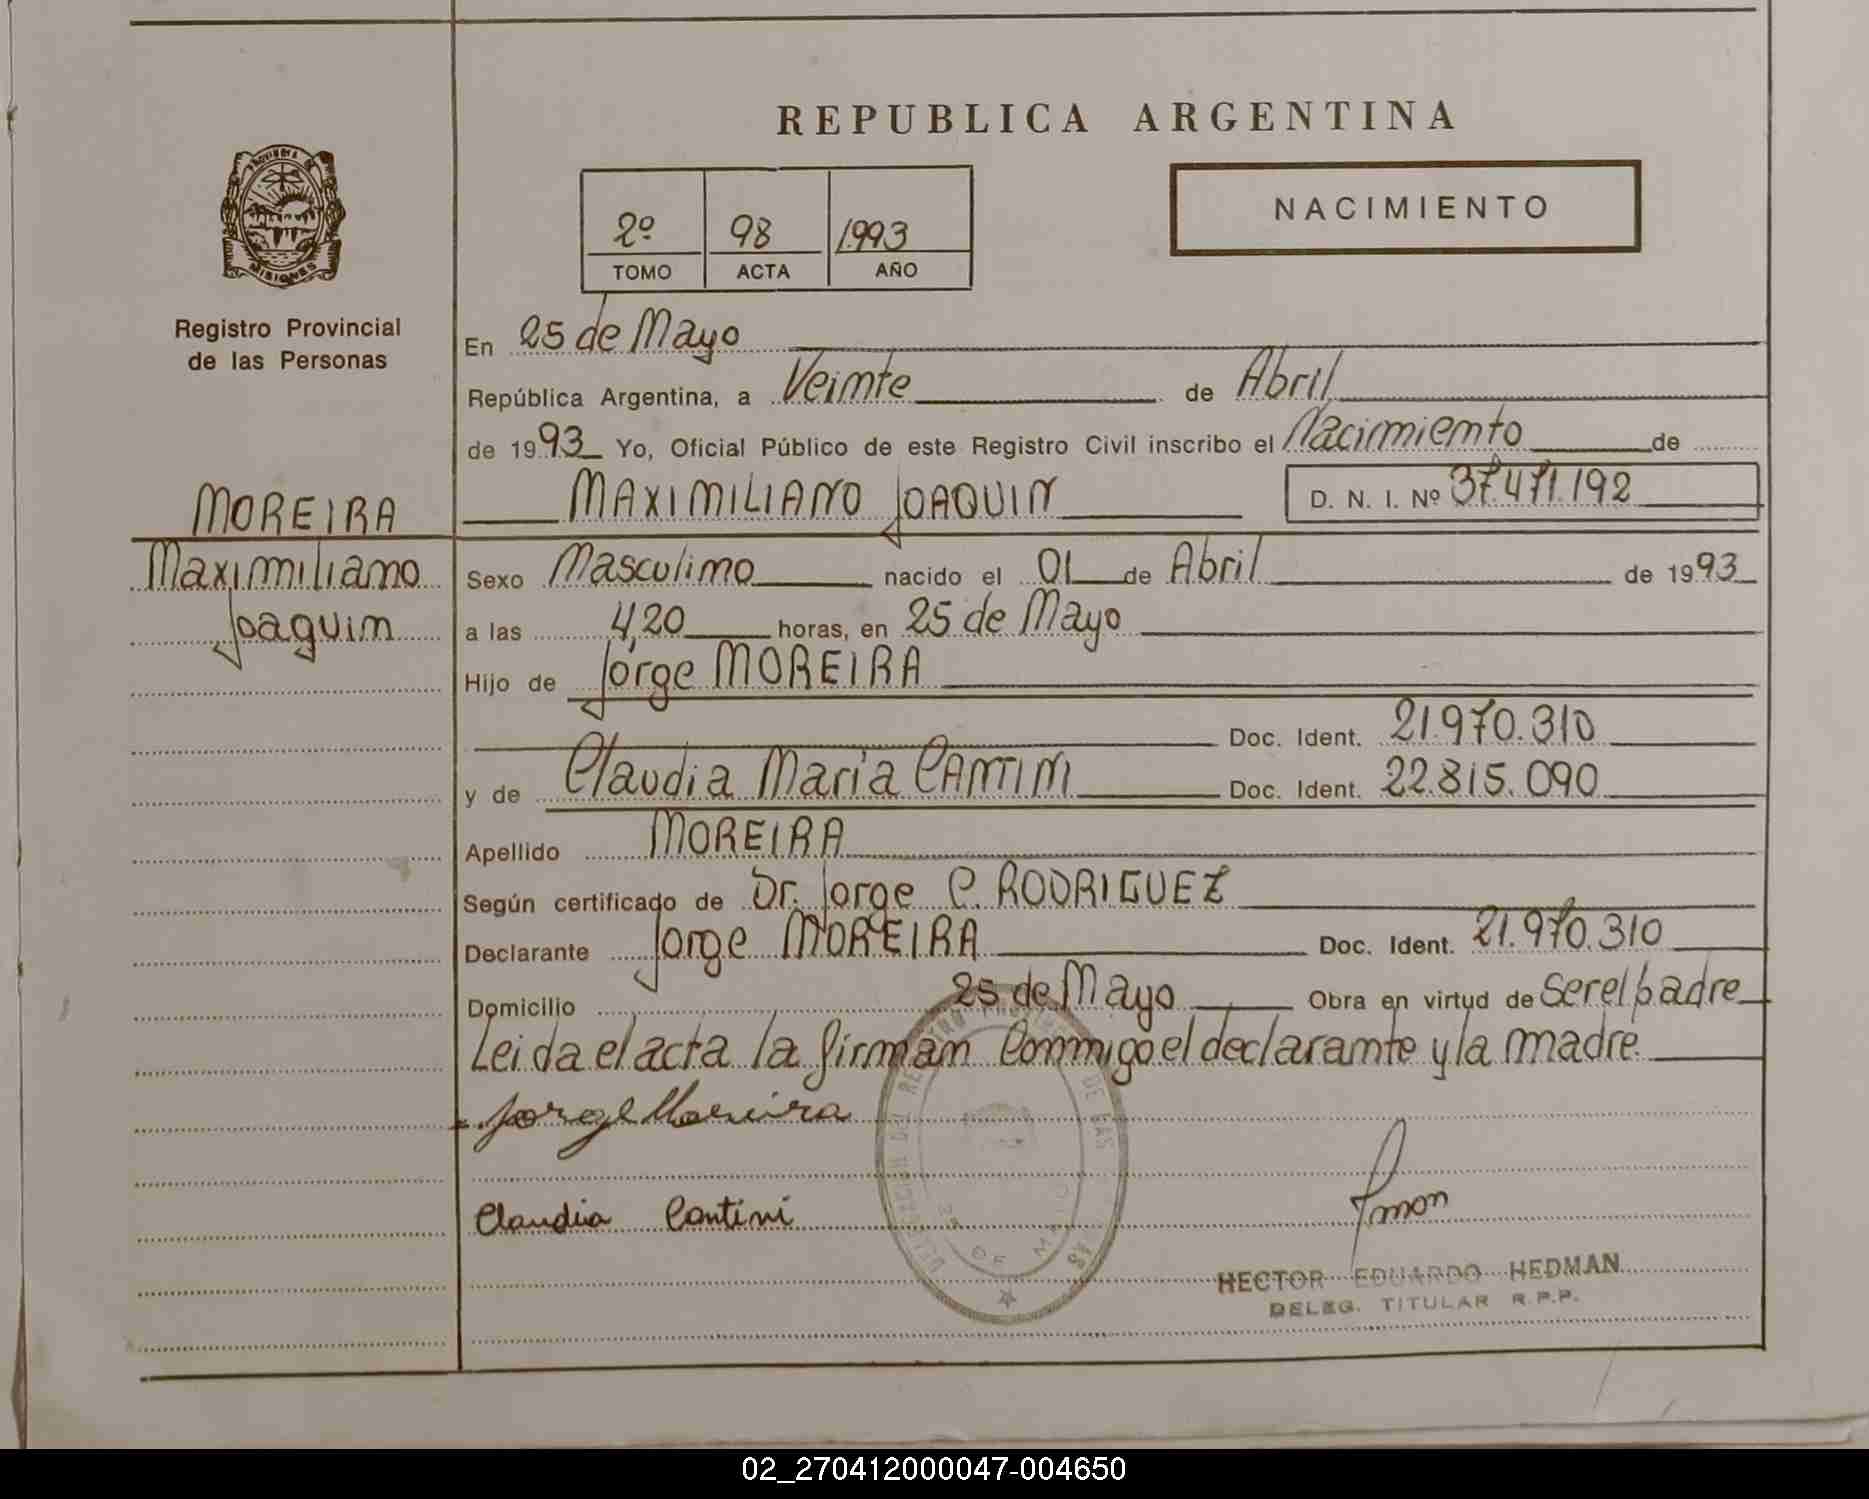 REPUBLICA ARGENTINA
PROVINCIA DE
MISIONES
NACIMIENTO
2º 98 1.993
TOMO ACTA AÑO
Registro Provincial
de las Personas
En 25 de Mayo
República Argentina, a Veinte de Abril
de 1993 Yo, Oficial Público de este Registro Civil inscribo el Nacimiento de
MOREIRA
MAXIMILIANO JOAQUIN D. N. I. Nº 37.471.192
Maximiliano
Joaquin
Sexo Masculino nacido el 01 de Abril de 1993
a las 4,20 horas, en 25 de Mayo
Hijo de Jorge MOREIRA
Doc. Ident. 21.970.310
y de Claudia Maria CANTINI Doc. Ident. 22.815.090
Apellido MOREIRA
Según certificado de Dr. Jorge C. RODRIGUEZ
Declarante Jorge MOREIRA Doc. Ident. 21.970.310
Domicilio 25 de Mayo Obra en virtud de Ser el padre
Leida el acta la firman Conmigo el declarante y la madre.
Jorge Moreira
Claudia Cantini
DELEGACION DEL REGISTRO DE LAS
25 DE MAYO
HECTOR EDUARDO HEDMAN
DELEG. TITULAR R.P.P.
02_270412000047-004650